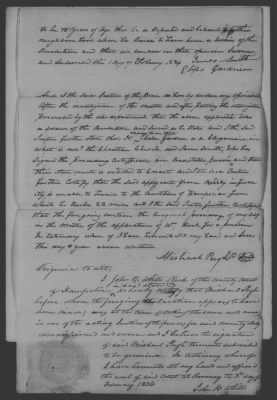 to be 75 years of Age that he is as Reputed and believed in the
neighbourhood where he Resides to have been a Soldier of the
Revolution and that we concur in that opinion Sworn
and Subscribed this 1 day of February 1834
James Smith
And I the said Justice of the Peace do hereby certify my opinion
after the investigation of the matter and after putting the interrogatories
prescribed by the war department that the above applicant was
a soldier of the Revolution and served as he states and the said
Justice further states that
what is called the Christian Church and James Smith who has
signed the foregoing certificate are Respectable persons and that
their Statement is entitled to credit and the said Justice
further certify that the said applicant from bodily infirm
ity is unable to travel to the Courthouse of Hampshire
which he resides 22 miles and the said Justice further certifies
that the foregoing contains the original proceedings of
in the matter of the application of Wm for a pension
In testimony whereof I have hereunto set my hand and seal
this day & year above written
Michael Pugh
Virginia to wit:
I John B. White Clerk of the County Court
of Hampshire, do hereby certify that Michael Pugh
before whom the foregoing declaration appears to have
been made, was at the time of doing the same and now
is one of the acting Justices of the peace for said County duly
commissioned and sworn and I believe the signature
of said Michael Pugh thereunto subscribed
to be genuine. In testimony whereof
I have hereunto set my hand and affixed
the seal of said court at Romney the
February 1834
John B. White